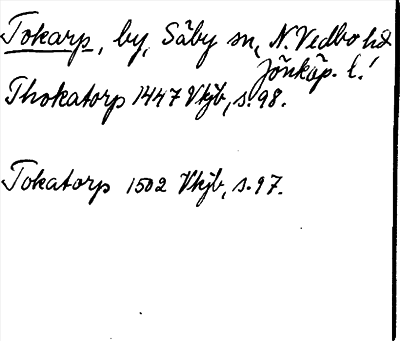 Tokarp, by, Säby sn, N. Vedbo hd
Jönköp. l.
Thokatorp 1447 Vkjb, s. 98.
Tokatorp 1502 Vkjb, s. 97.